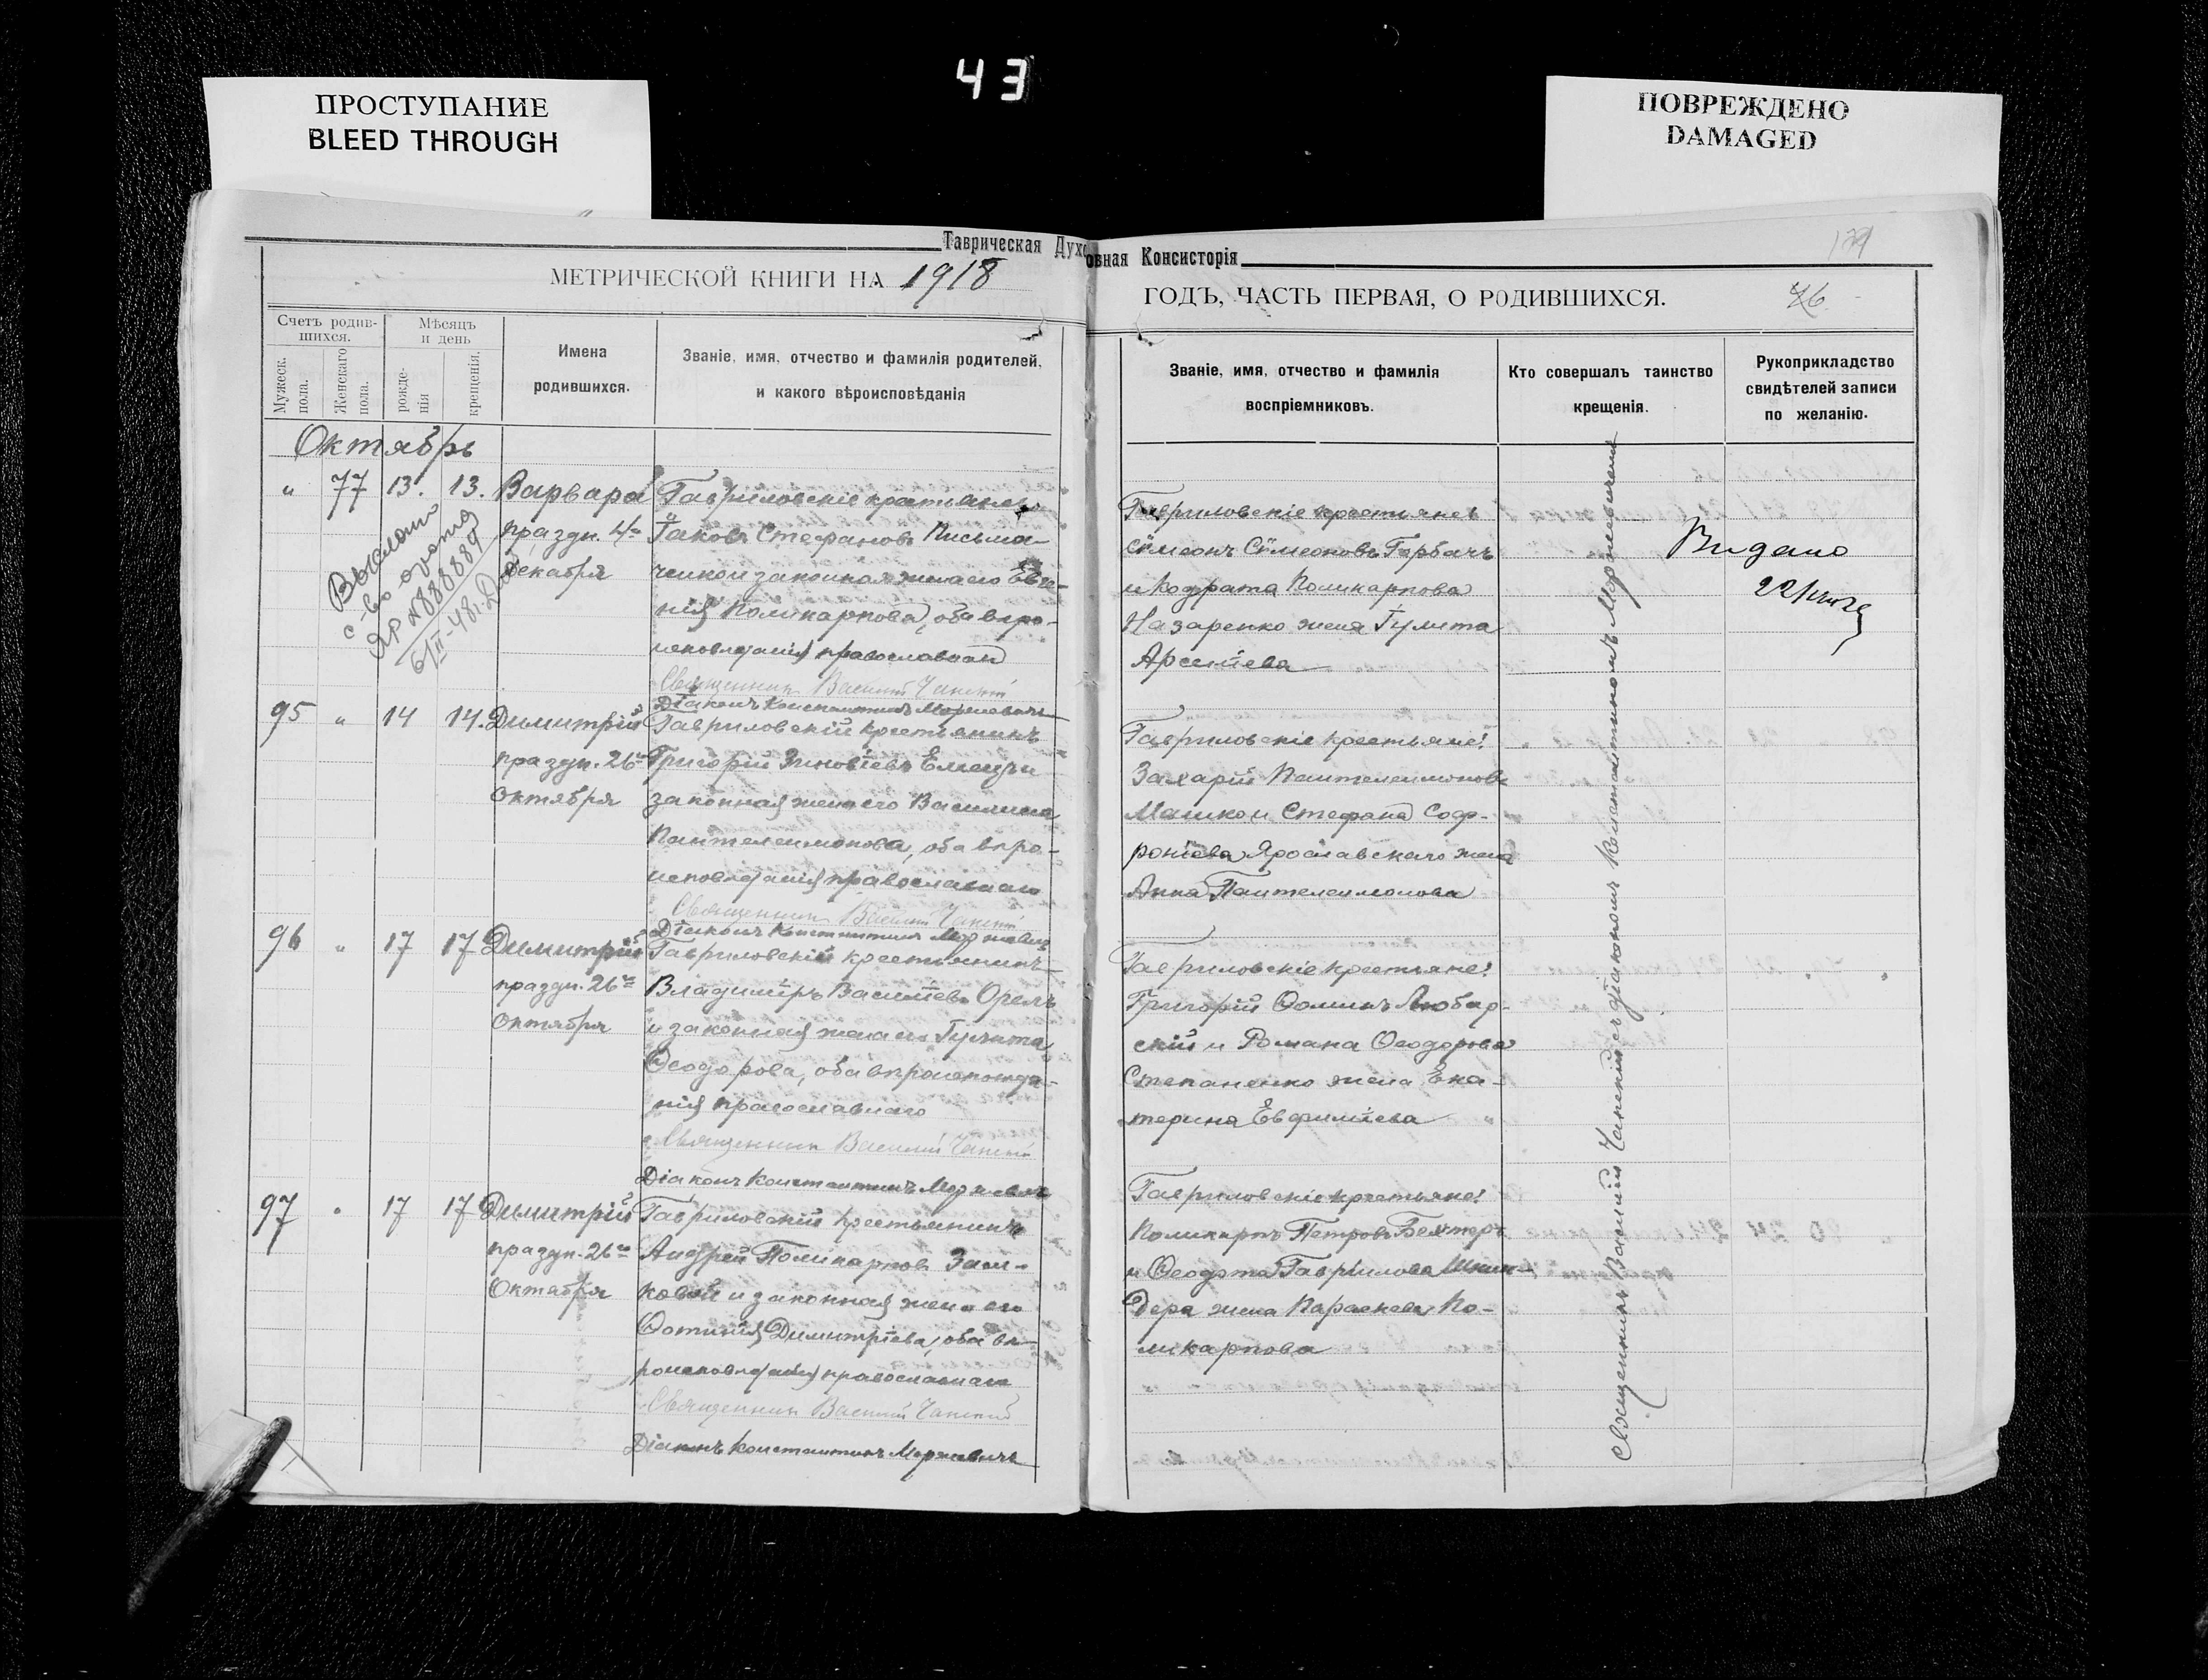 43
ПРОСТУПАНИЕ
BLEED THROUGH
ПОВРЕЖДЕНО
DAMAGED
Таврическая Духовная Консисторія
МЕТРИЧЕСКОЙ КНИГИ НА 1918
ГОДЪ, ЧАСТЬ ПЕРВАЯ, О РОДИВШИХСЯ.
76
Счетъ родив-
шихся.
Мужеск. пола.
Женскаго пола.
Мѣсяцъ
и день
рожде-
нія
крещенія.
Имена
родившихся.
Званіе, имя, отчество и фамилія родителей,
и какого вѣроисповѣданія
Званіе, имя, отчество и фамилія
воспріемниковъ.
Кто совершалъ таинство
крещенія.
Рукоприкладство
свидѣтелей записи
по желанію.
Октябрь
" 77 13. 13. Варвара
праздн. 4го
декабря
Выслано
с-во
ЯР №888889
6/II-48г.
Гавриловскіе крестьяне
Іаковъ Стефановъ Письма-
ченко и законная жена его Евге-
нія Поликарпова, оба вѣро-
исповѣданія православнаго
Священникъ Василій Чапскій
Діаконъ Константинъ Моржевичъ
Гавриловскіе крестьяне:
Сѵмеонъ Сѵмеоновъ Горбачъ
и Кодрата Поликарпова
Назаренко жена Іулита
Арсеніева
Видано
95 " 14 14. Димитрій
праздн. 26го
Октября
Гавриловскій крестьянинъ
Григорій Зиновіевъ Елисецъ и
законная жена его Василиса
Пантелеимонова, оба вѣро-
исповѣданія православнаго
Священникъ Василій Чапскій
Діаконъ Константинъ Моржевичъ
Гавриловскіе крестьяне:
Захарій Пантелеимоновъ
Машко и Стефана Соф-
роніева Ярославскаго жена
Анна Пантелеимонова
96 " 17 17 Димитрій
праздн. 26го
Октября
Гавриловскій крестьянинъ
Владимиръ Василіевъ Орелъ
и законная жена его Іулита
Ѳеодорова, оба вѣроисповѣда-
нія православнаго
Священникъ Василій Чапскій
Діаконъ Константинъ Моржевичъ
Гавриловскіе крестьяне:
Григорій Ѳоминъ Любар-
скій и Романа Ѳеодорова
Степаненко жена Ека-
терина Евфиміева
97 " 17 17 Димитрій
праздн. 26го
Октября
Гавриловскій крестьянинъ
Андрей Поликарповъ Зами-
ковой и законная жена его
Фотинія Димитріева, оба вѣ-
роисповѣданія православнаго
Священникъ Василій Чапскій
Діаконъ Константинъ Моржевичъ
Гавриловскіе крестьяне:
Поликарпъ Петровъ Бехтеръ
и Ѳеодота Гаврилова Шкин-
дера жена Параскева По-
ликарпова
Священникъ Василій Чапскій съ діакономъ Константиномъ Моржевичемъ